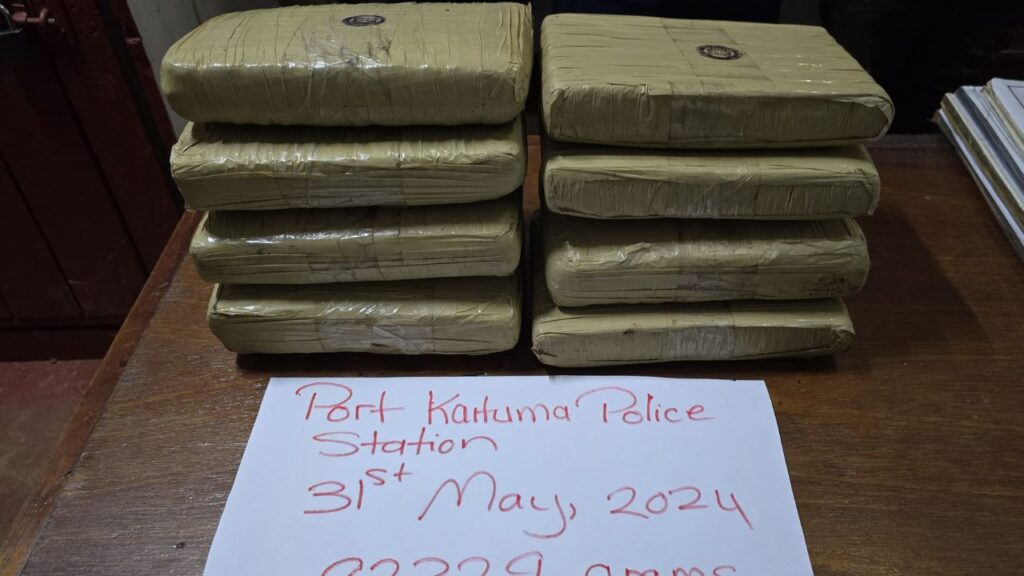 Port Kaituma Police
Station
31st May, 2024